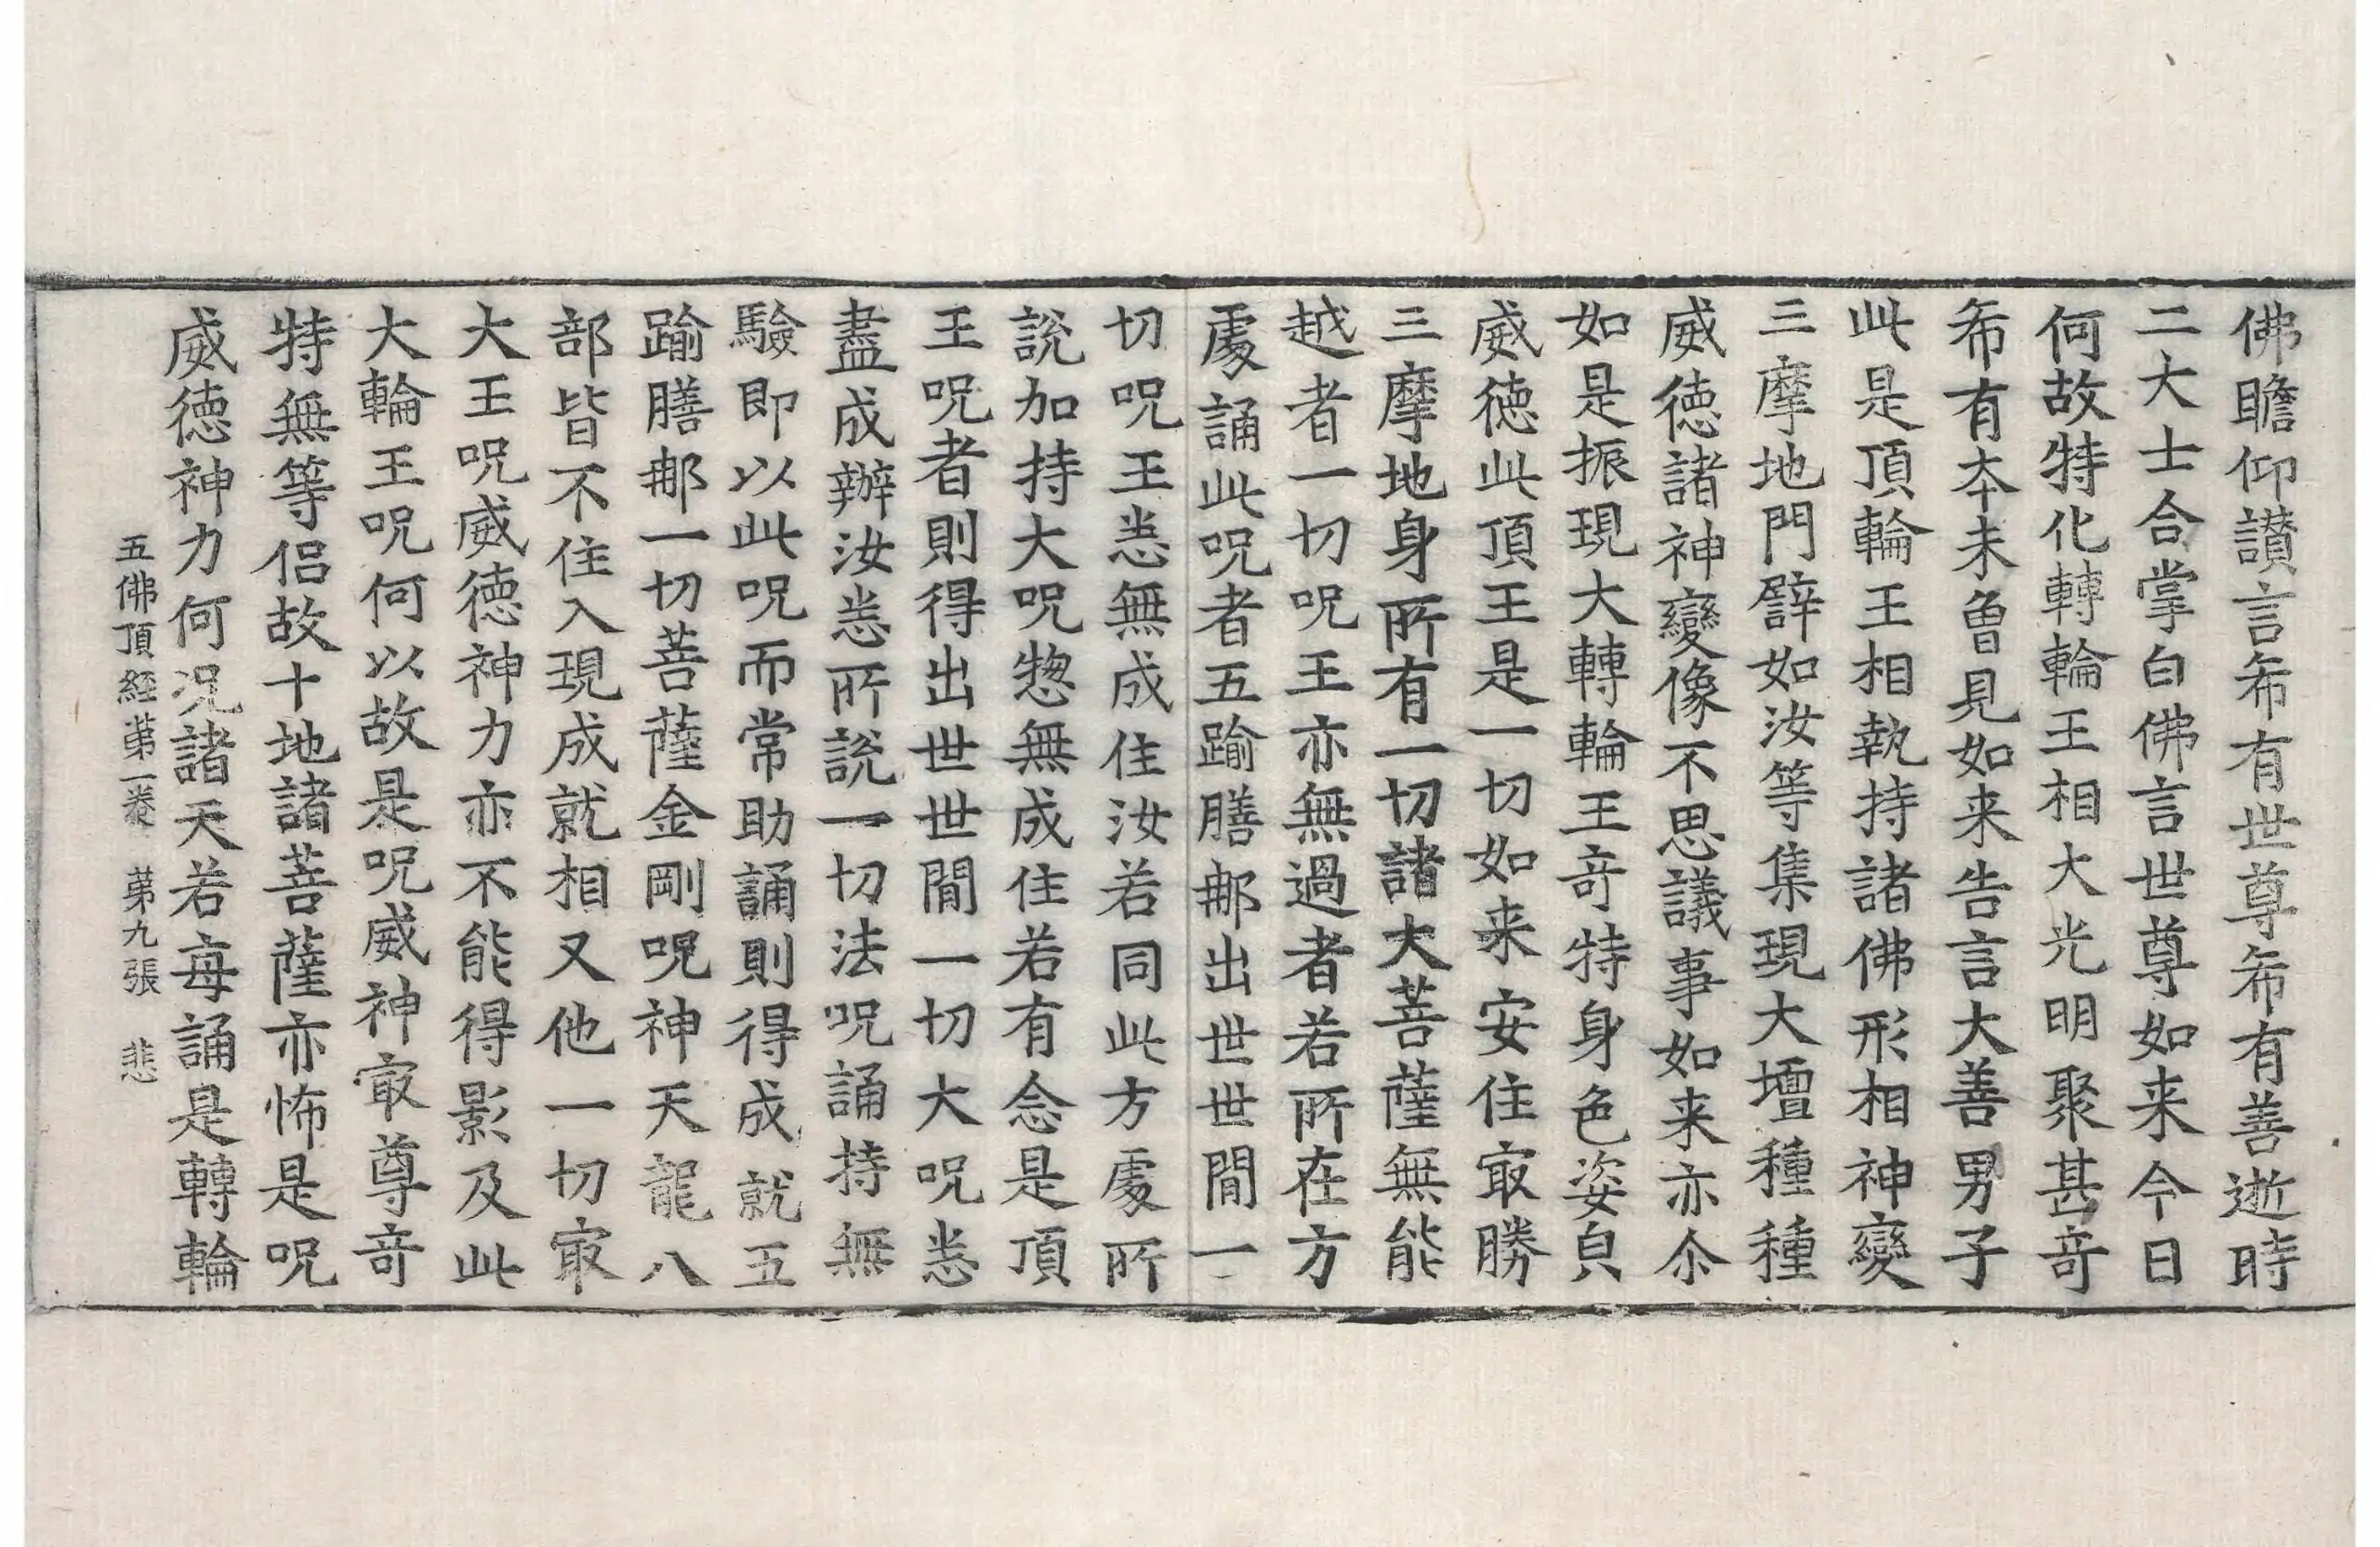 佛瞻仰讃言希有世尊希有善逝時
二大士合掌白佛言世尊如来今日
何故特化轉輪王相大光明聚甚竒
希有夲未曾見如来告言大善男子
此是頂輪王相執持諸佛形相神變
三摩地門譬如汝等集現大壇種種
威徳諸神變像不思議事如来亦尒
如是振現大轉輪王竒特身色姿皃
威徳此頂王是一切如来安住㝡勝
三摩地身所有一切諸大菩薩無能
越者一切呪王亦無過者若所在方
處誦此呪者五踰膳那出世世間一
切呪王悉無成住汝若同此方處所
說加持大呪惣無成住若有念是頂
王呪者則得出世世間一切大呪悉
盡成辦汝悉所說一切法呪誦持無
驗即以此呪而常助誦則得成就五
踰膳那一切菩薩金剛呪神天龍八
部皆不住入現成就相又他一切㝡
大王呪威徳神力亦不能得影及此
大輪王呪何以故是呪威神㝡尊竒
特無等侣故十地諸菩薩亦怖是呪
威徳神力何况諸天若每誦是轉輪
五佛頂經苐一卷 苐九張 悲